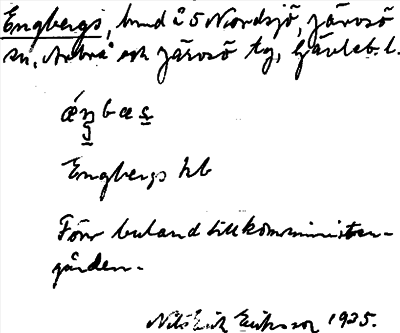 Engbergs, bind å 5 Nordsjö, Järvsö
sn, Arbrå och Järvsö tg, Gävleb. l.
ǽŋbæs̠
Engbergs hb
Förr buland till komminister-
gården.
Nils Erik Eriksson 1935.